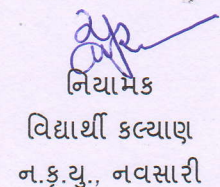 નિયામક
વિદ્યાર્થી કલ્યાણ
ન.કૃ.યુ., નવસારી